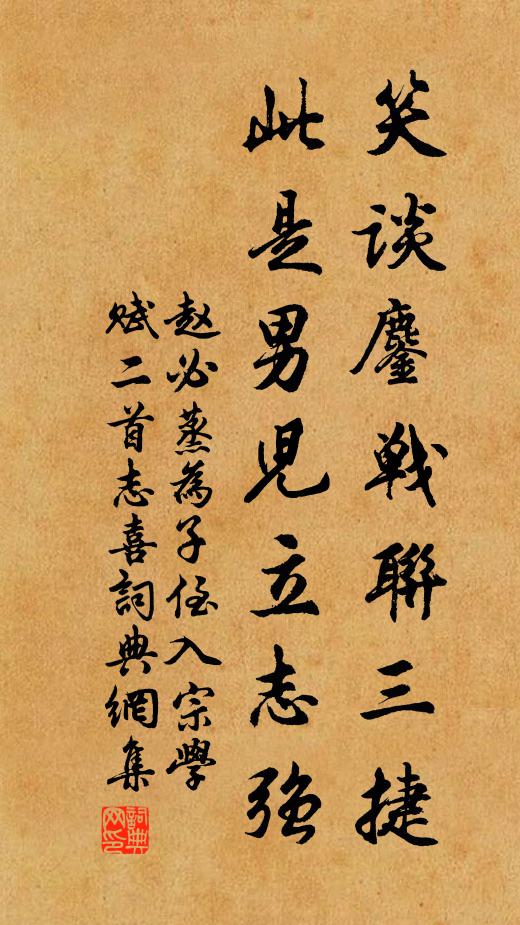 笑談鏖戰聯三捷
此是男兒立志強
赵必蒸為子侄入宗學
赋二首志喜詞典網集
詞典网印